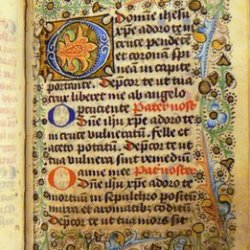 O Domine ihesu
xpe adoro te in
cruce pendente
et corona spi
neam in capite
portante. Deprecor te ut tua
crux liberet me ab angelo
percutiente Pater nost
O Domine ihesu xpe adoro te
in cruce vulneratu. felle et
aceto potatu. Deprecor te ut
tua vulnera sint remediu
anime mee Pat noster
O Domine ihesu xpe adoro te in
sepulchro positu
Deprecor te ut tua mors sit